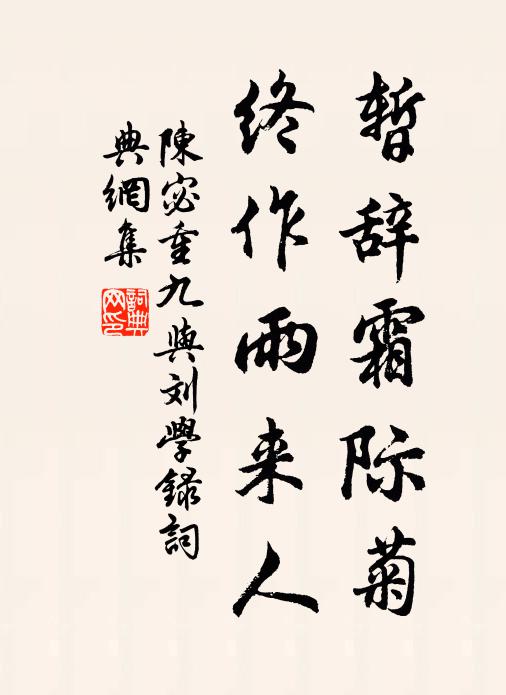 暫辞霜际菊
终作雨来人
陳宓重九與刘學録詞
典網集
詞典網印